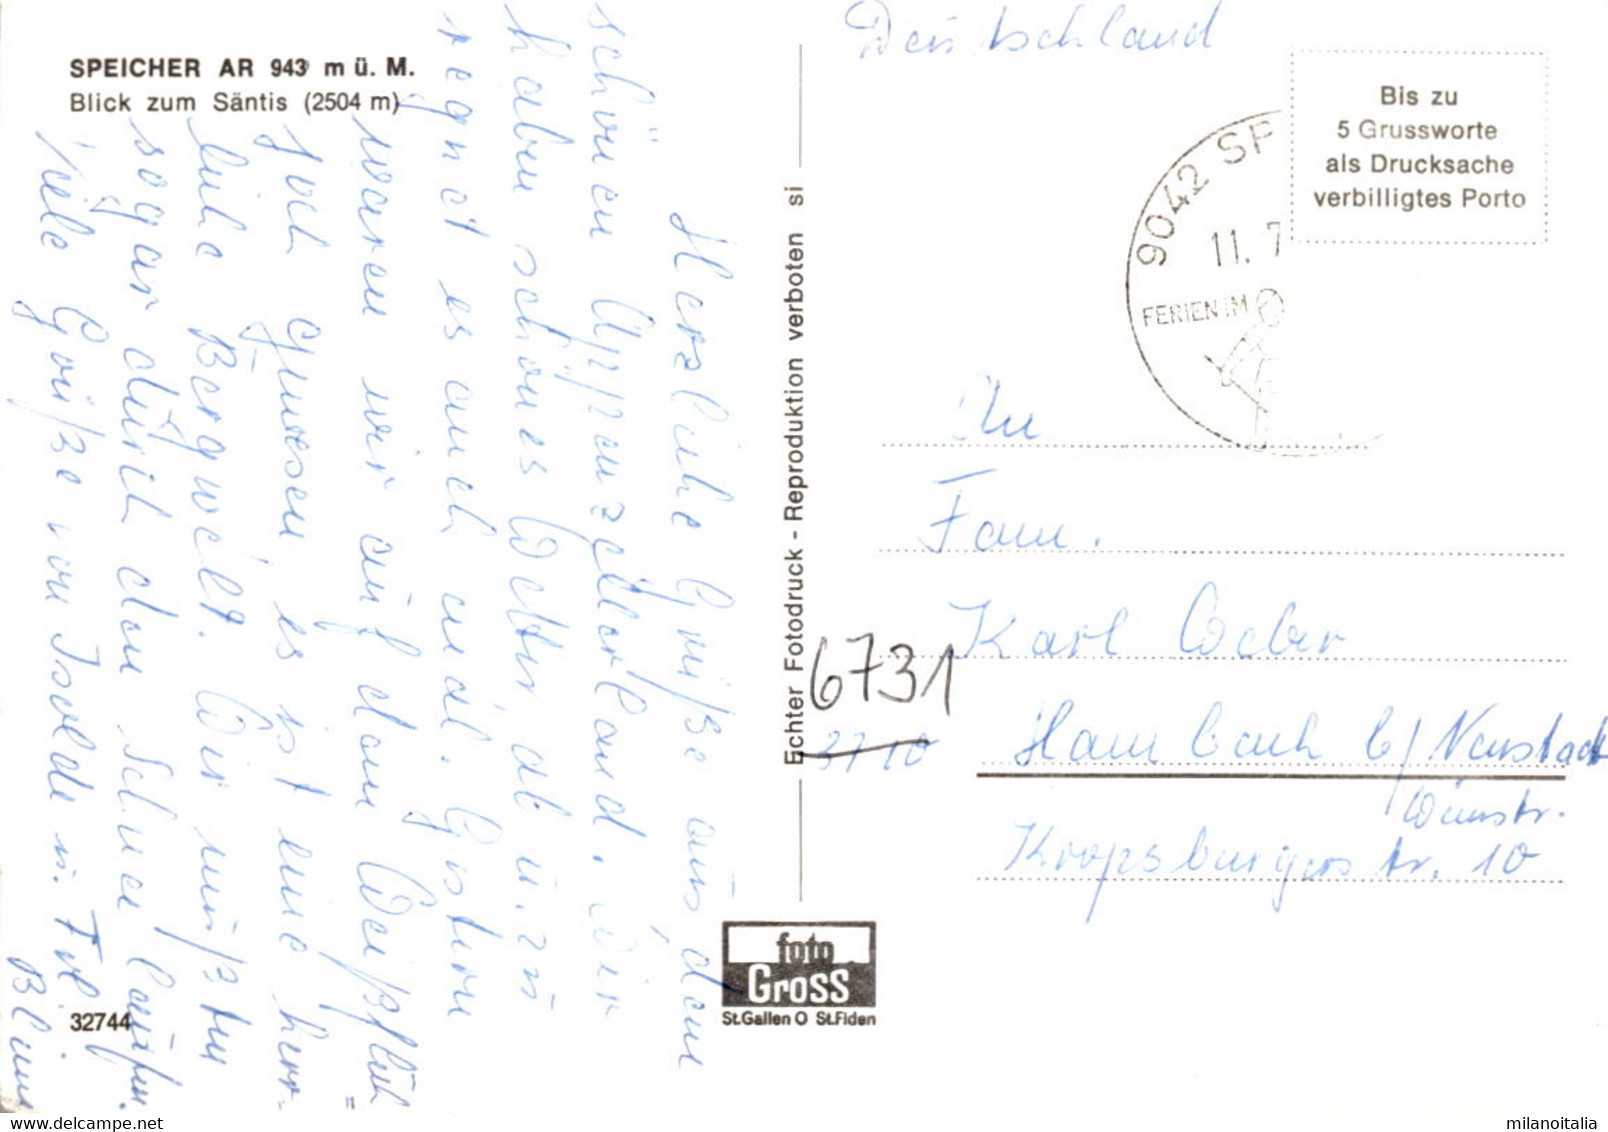 SPEICHER AR 943 m ü. M.
Blick zum Säntis (2504 m)
Herzliche Grüße aus dem
schönen Appenzellerland. Wir
haben schönes Wetter, ab u. zu
regnet es auch mal. Gestern
waren wir auf dem
Joch gewesen, es ist eine herr-
liche Bergwelt. Wir mußten
sogar durch den Schnee laufen.
Viele Grüße von Isolde u. Fol
Blum
32744
Echter Fotodruck - Reproduktion verboten si
foto
Gross
St.Gallen O St.Fiden
Deutschland
Bis zu
5 Grussworte
als Drucksache
verbilligtes Porto
9042 SP
11. 7
FERIEN IM
An
Fam.
Karl Weber
6731
Hambach b/ Neustadt
Weinstr.
Kropsburgerstr. 10